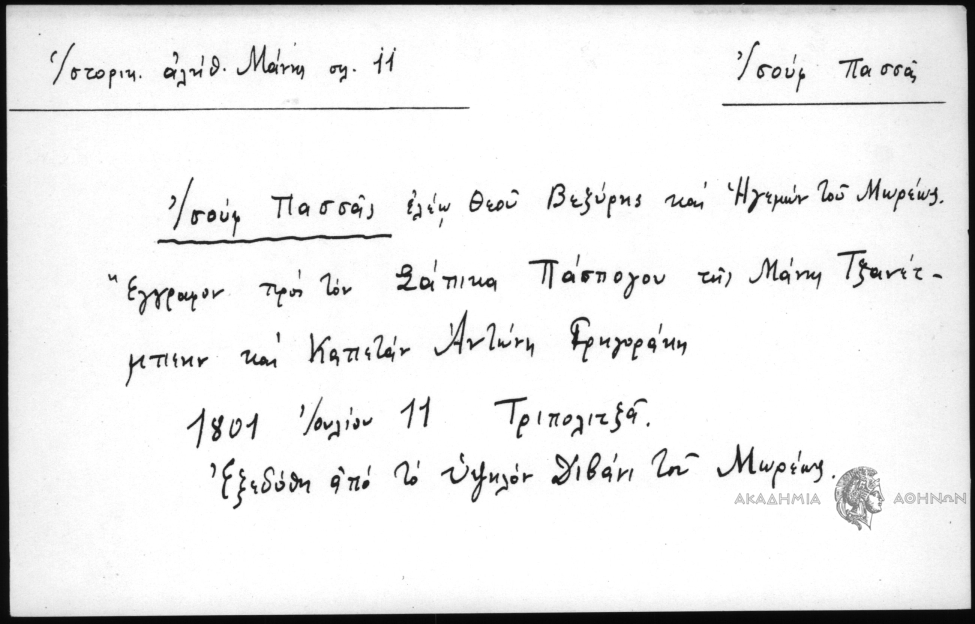 Ἱστορικ. ἀλήθ. Μάνης σελ. 11
Ἰσούφ Πασσᾶς
Ἰσούφ Πασσᾶς ἐλέῳ Θεοῦ Βεζύρης καὶ Ἡγεμών τοῦ Μωρέως.
Ἔγγραφον πρός τόν Σάπικα Πάσπογου τῆς Μάνης Τζανέτ-
μπεην καί Καπετάν Ἀντώνη Γρηγοράκη
1801 Ἰουλίου 11 Τριπολιτζᾶ.
Ἐξεδόθη ἀπό τό ὑψηλόν Διβάνι τοῦ Μωρέως.
ΑΚΑΔΗΜΙΑ ΑΘΗΝΩΝ